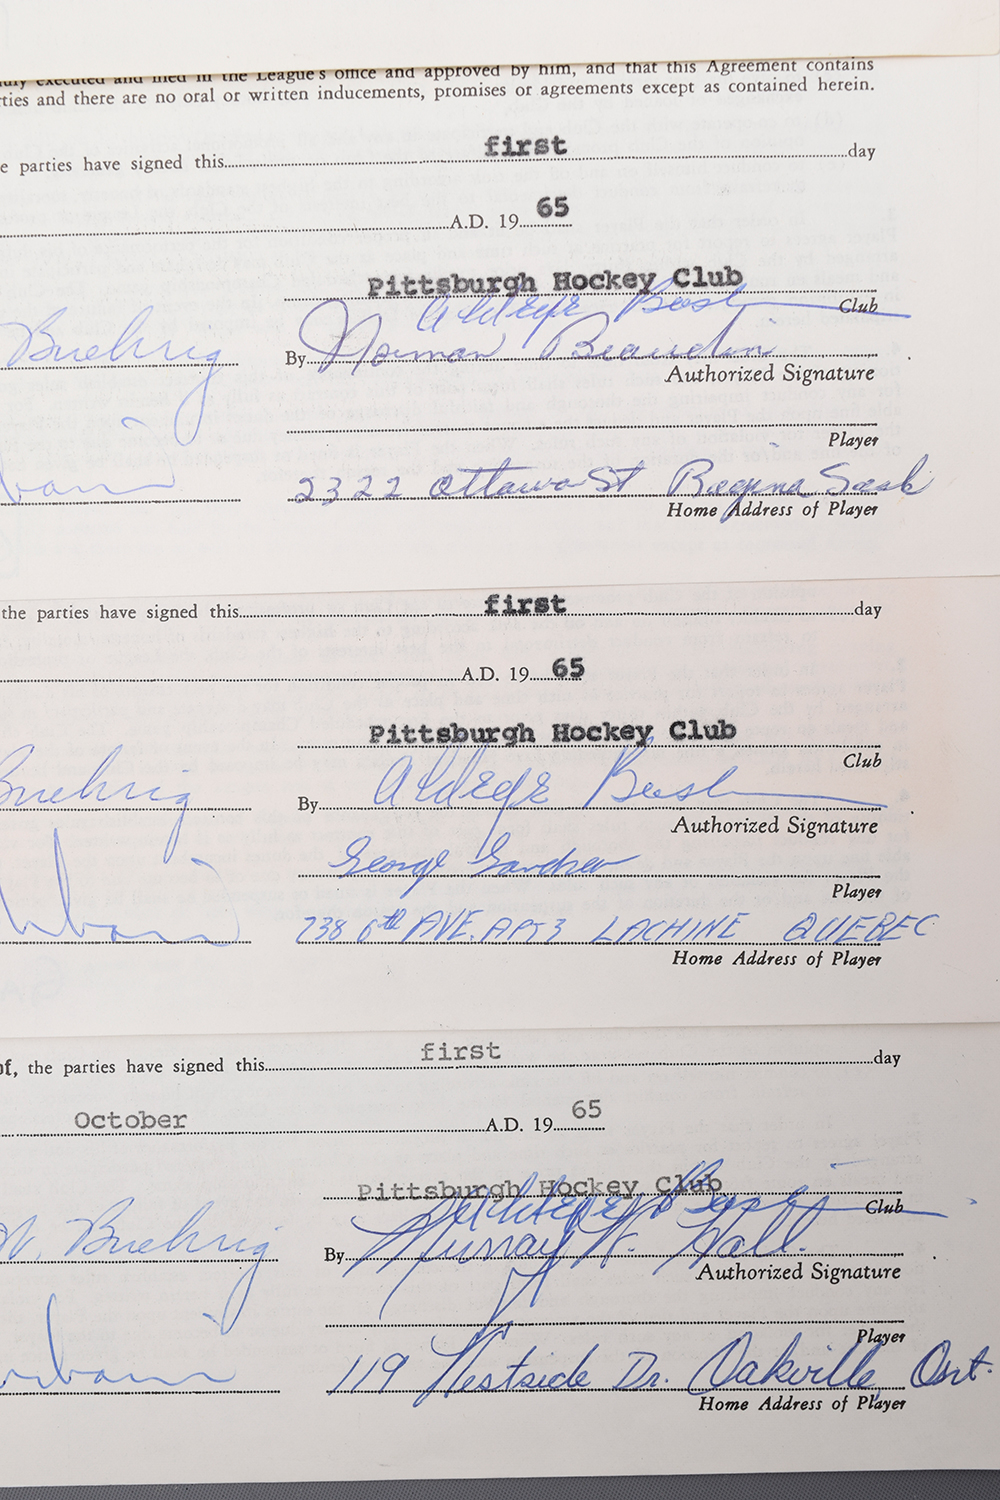 duly executed and filed in the League's office and approved by him, and that this Agreement contains
ties and there are no oral or written inducements, promises or agreements except as contained herein.
e parties have signed this first day
A.D. 19 65
Pittsburgh Hockey Club
Club
Buehrig By Norman Beaudin
Authorized Signature
Player
2322 Ottawa St Regina Sask
Home Address of Player
the parties have signed this first day
A.D. 19 65
Pittsburgh Hockey Club
Club
Buehrig By
Authorized Signature
George Gardner
Player
738 6th AVE. APT 3 LACHINE QUEBEC
Home Address of Player
of, the parties have signed this first day
October A.D. 19 65
Pittsburgh Hockey Club
Club
W. Buehrig By Murray W. Hall.
Authorized Signature
Player
119 Westside Dr. Oakville, Ont.
Home Address of Player